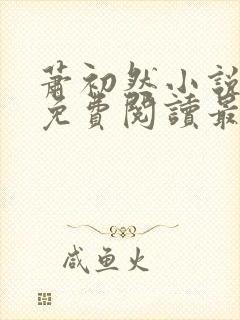 蕭初然小說
免費閱讀最
咸鱼火